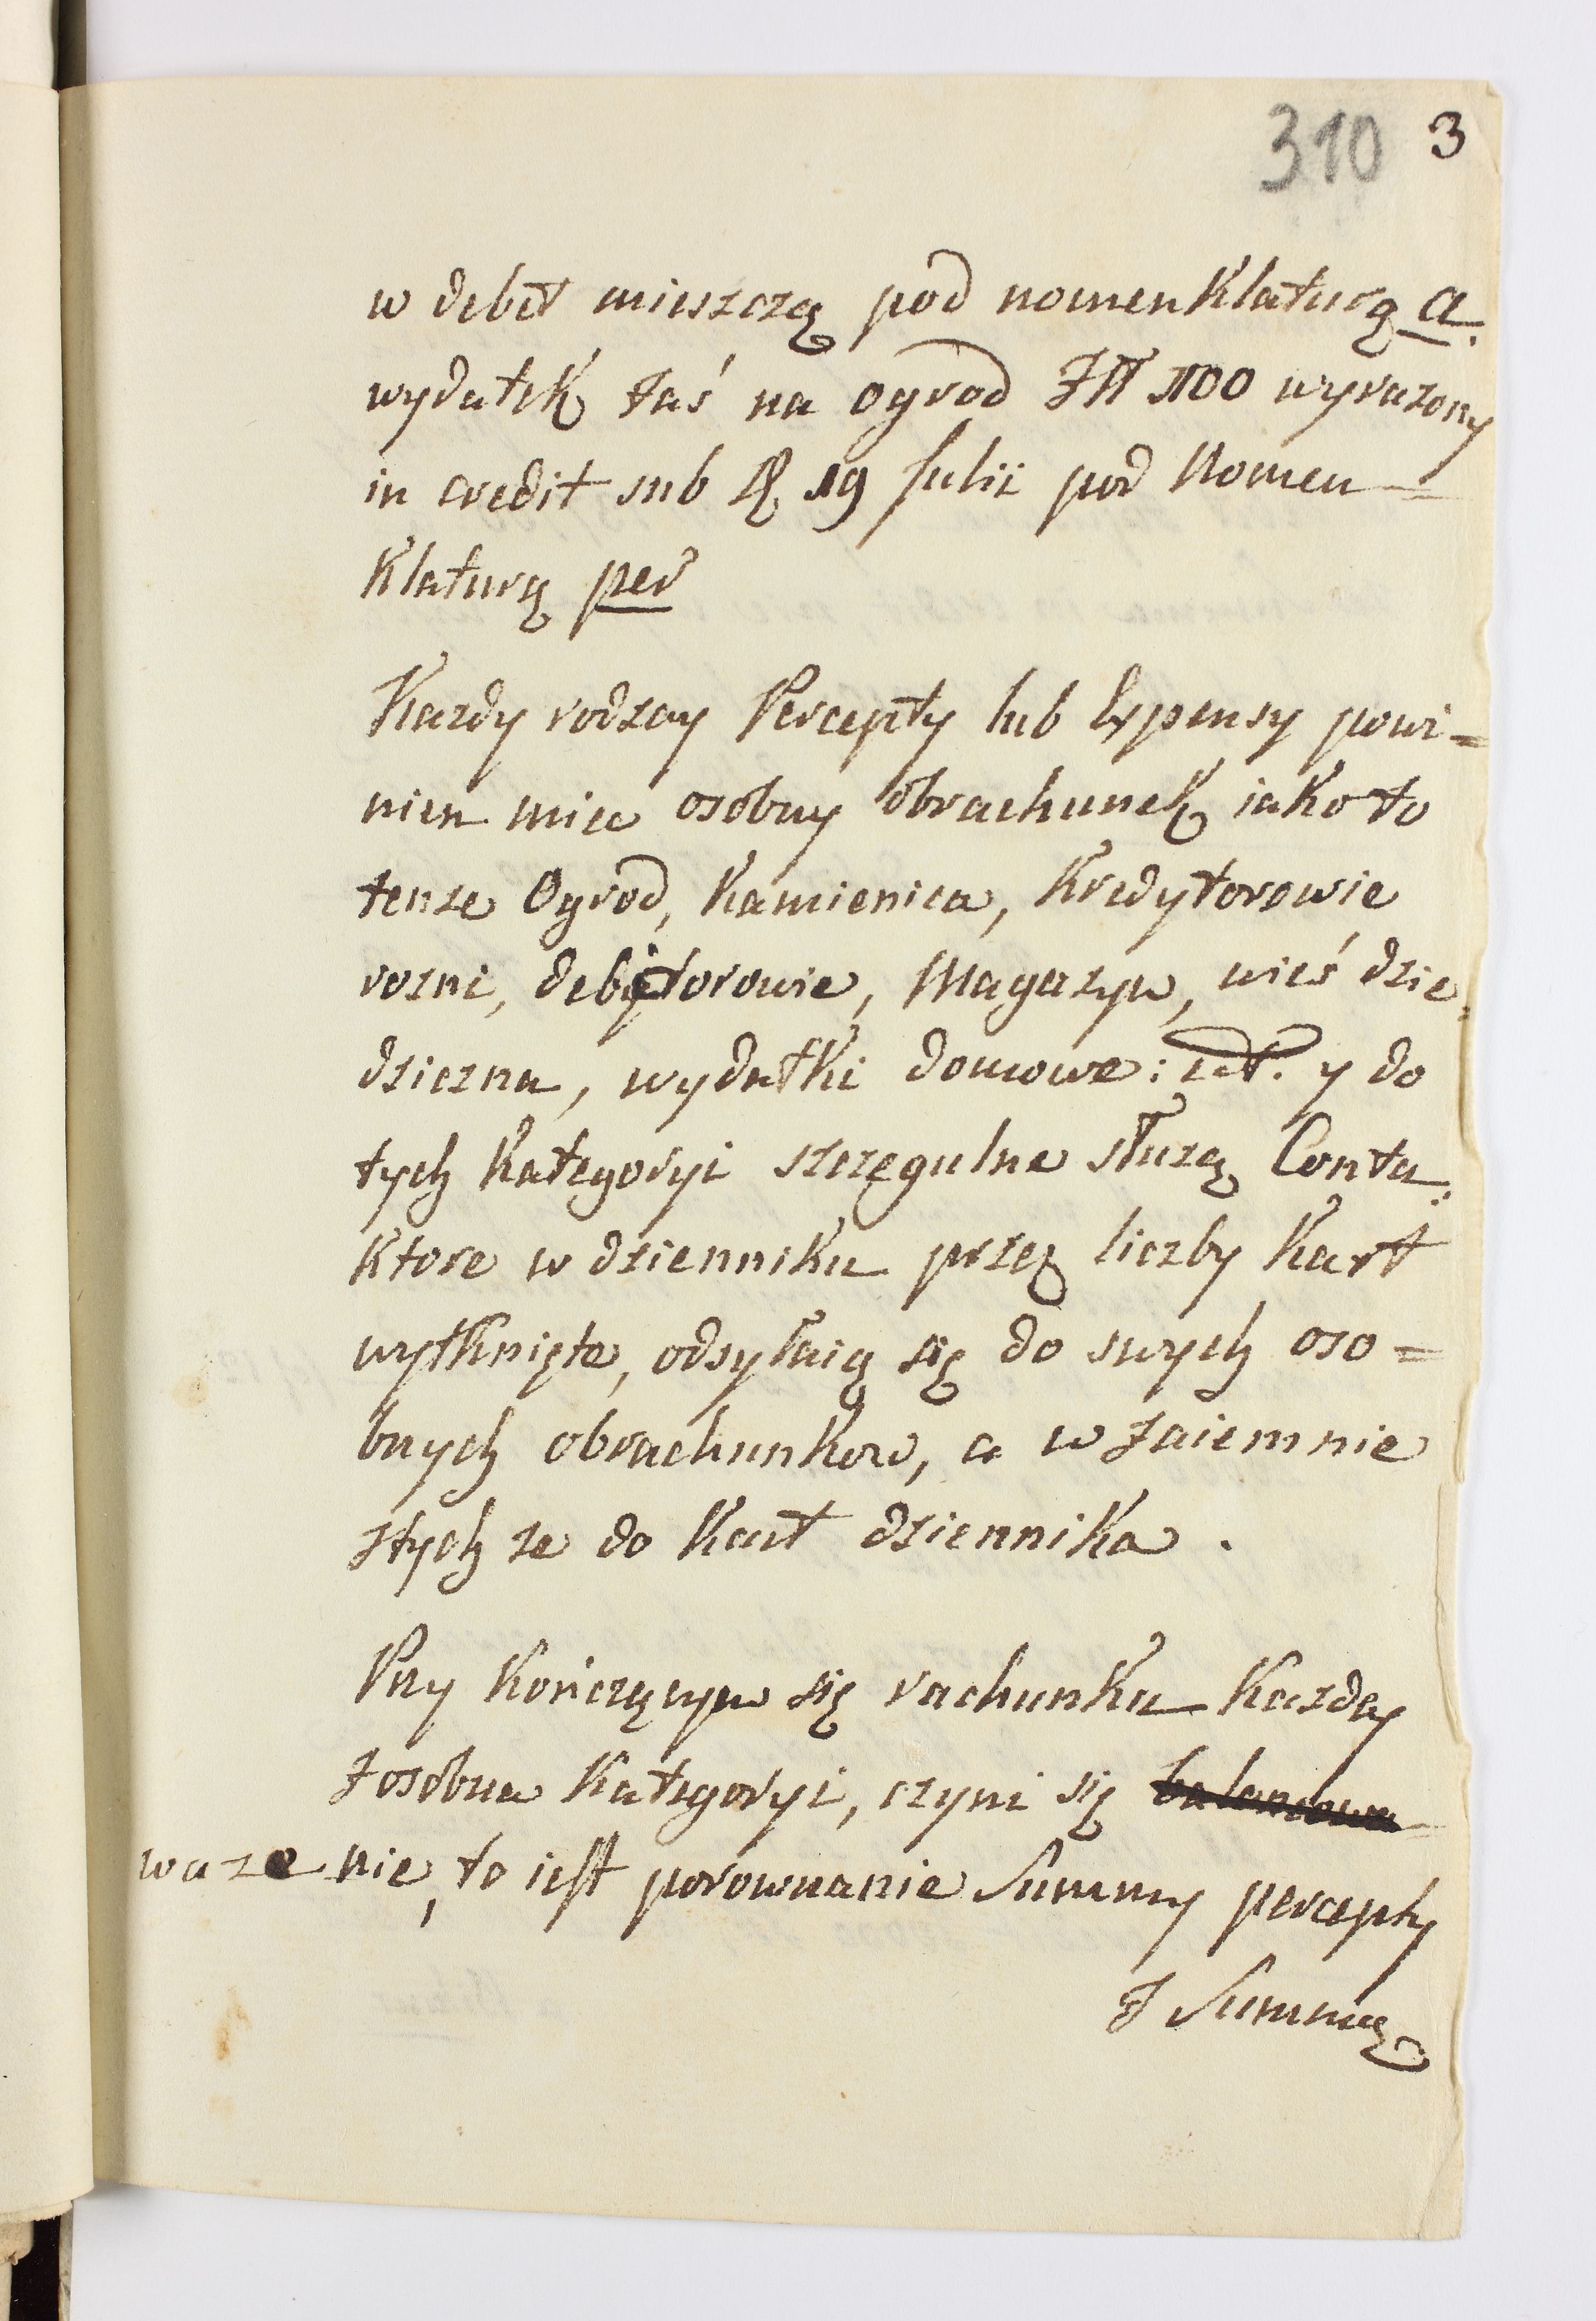 310 3
w debet mieszczą pod nomenklaturą a.
wydatek zaś na ogrod Zł 100 wyrazony
in credit sub 19 Julii pod Nomen=
klaturą per
Kazdy rodzay Percepty lub Expensy powi=
nien miec osobny obrachunek iako to
tenze Ogrod, Kamienica, Kredytorowie
rozni, debitorowie, Magazyn, wieś dzie=
dziczna, wydatki domowe: ect. y do
tych kategoryi szczegulne służą Conta:
ktore w dzienniku przez liczby kart
wytknięte, odsyłaią się do swych oso=
bnych obrachunkow, a wzaiemnie
ztych ze do kart dziennika.
Przy kończącym się rachunku kazdey
zosobna kategoryi, czyni się balansowa=
wazenie, to iest porownanie Summy percepty
z Summą